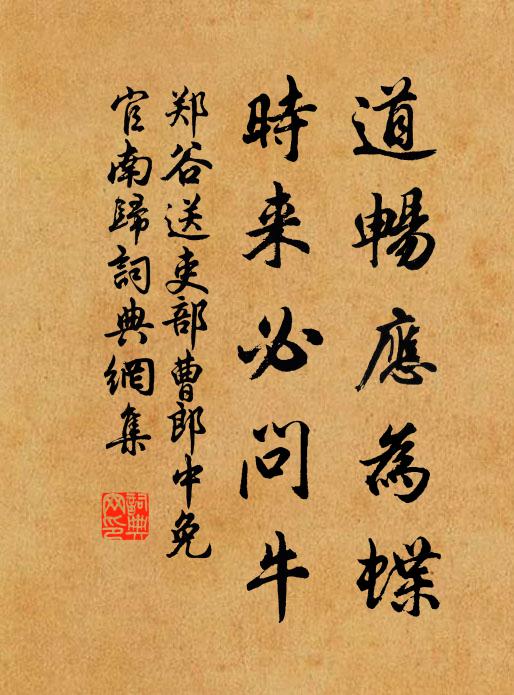 道暢應為蝶
時来必問牛
郑谷送吏部曹郎中免
官南歸詞典網集
詞典网印